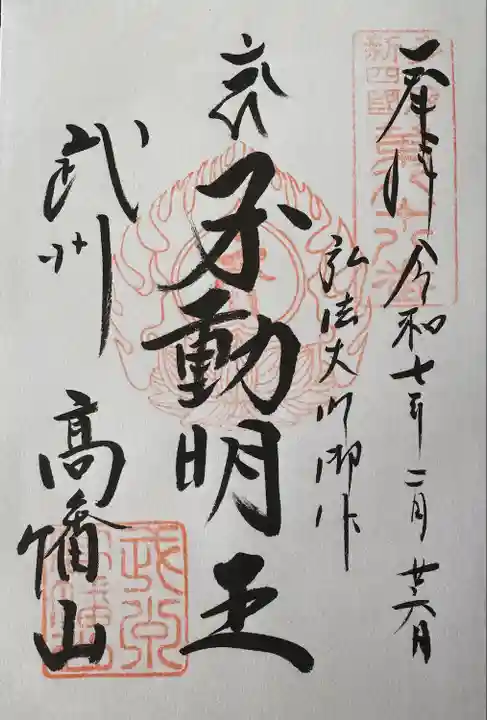 奉拝 令和七年二月廿六日
新四國
弘法大師御作
不動明王
武州 高幡山